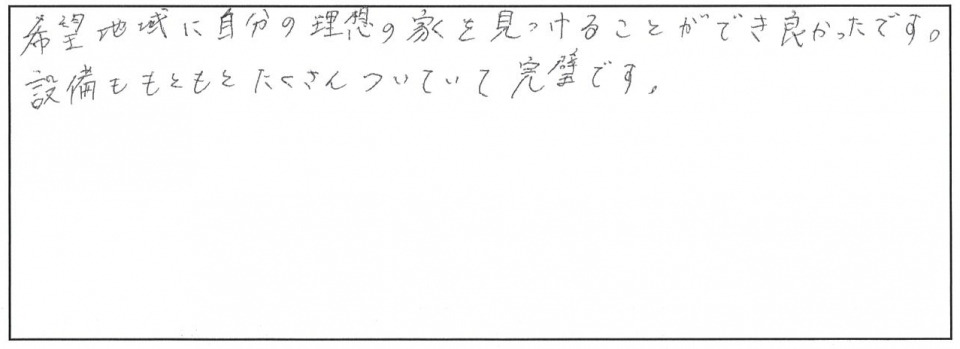 希望地域に自分の理想の家を見つけることができ良かったです。
設備ももともとたくさんついていて完璧です。